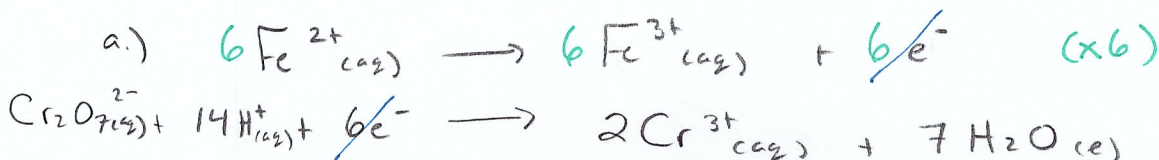 a.) 6 Fe²⁺(aq) ⟶ 6 Fe³⁺(aq) + 6e⁻ (x6)
Cr₂O₇²⁻(aq) + 14H⁺(aq) + 6e⁻ ⟶ 2Cr³⁺(aq) + 7H₂O(l)